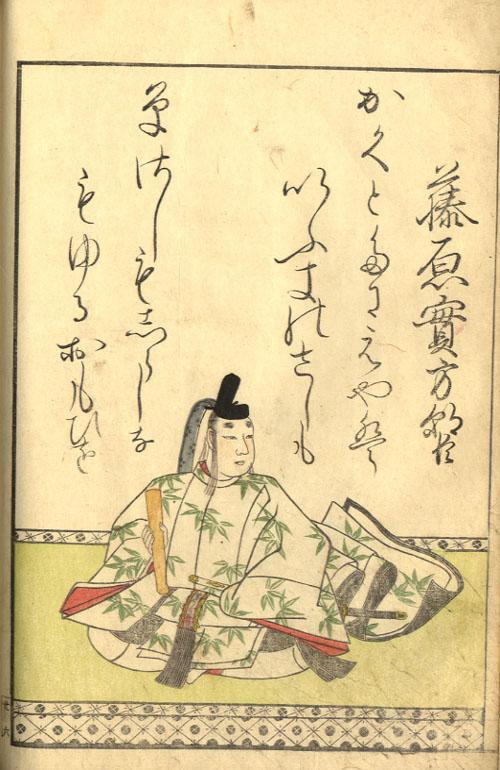 藤原實方朝臣
かくとたにえやは
いふきのさしも
草さしもしらしな
もゆるおもひを
廿六